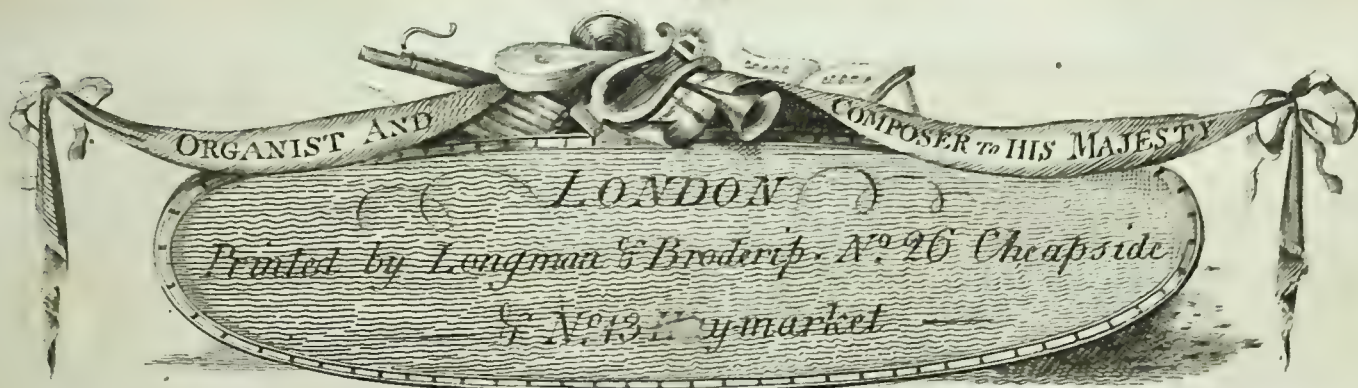 ORGANIST AND COMPOSER TO HIS MAJESTY
LONDON
Printed by Longman & Broderip. No. 26 Cheapside
& No. 13 Haymarket